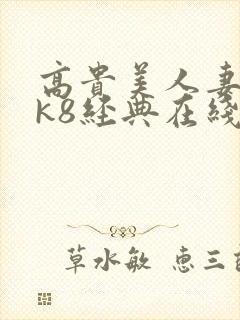 高貴美人妻
k8経典在綫
草水敏 恵三